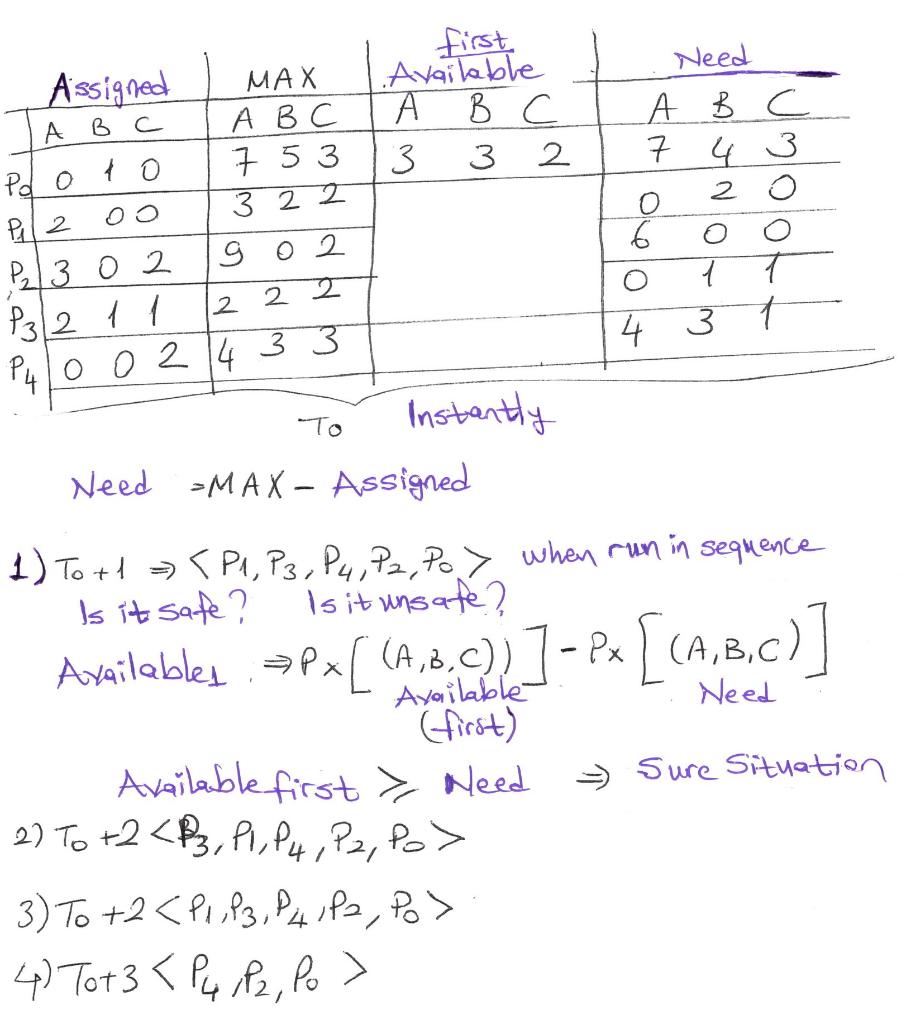 first
Assigned MAX Available Need
A B C A B C A B C A B C
P0 0 1 0 7 5 3 3 3 2 7 4 3
P1 2 0 0 3 2 2 0 2 0
P2 3 0 2 9 0 2 6 0 0
P3 2 1 1 2 2 2 0 1 1
P4 0 0 2 4 3 3 4 3 1
To Instantly
Need = MAX - Assigned
1) To+1 ⇒ < P1, P3, P4, P2, P0 > when run in sequence
Is it safe? Is it unsafe?
Available1 ⇒ Px [ (A,B,C)) ] - Px [ (A,B,C) ]
Available Need
(first)
Available first ⩾ Need ⇒ Sure Situation
2) To +2 < P3, P1, P4, P2, P0 >
3) To +2 < P1, P3, P4, P2, P0 >
4) To+3 < P4, P2, P0 >